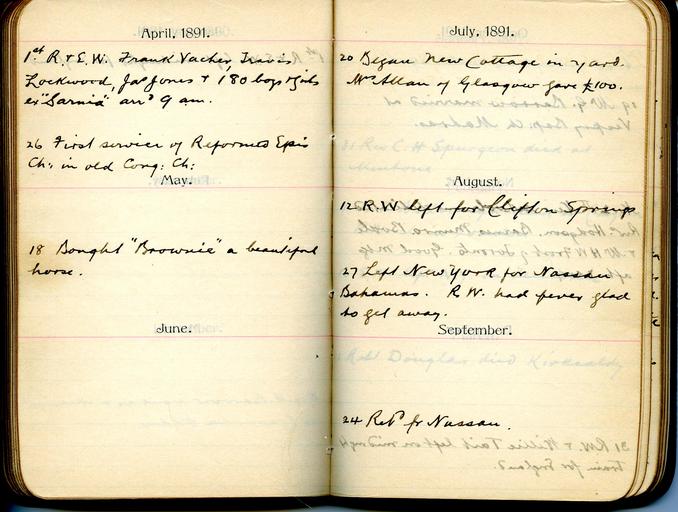 April, 1891.
1st R. & E. W. Frank Vacher, Travis
Lockwood, Jas Jones & 180 boys & girls
ex "Sarnia" arrd 9 am.
26 First service of Reformed Epis
Ch: in old Cong: Ch:
May.
18 Bought "Brownie" a beautiful
horse.
June.
July, 1891.
20 Began New Cottage in yard.
Mrs Allan of Glasgow gave £100.
August.
12 R.W left for Clifton Springs
27 Left New York for Nassau
Bahamas. R W. had fever glad
to get away.
September.
Robt Douglas died Kirkcaldy
24 Retd fr Nassau.